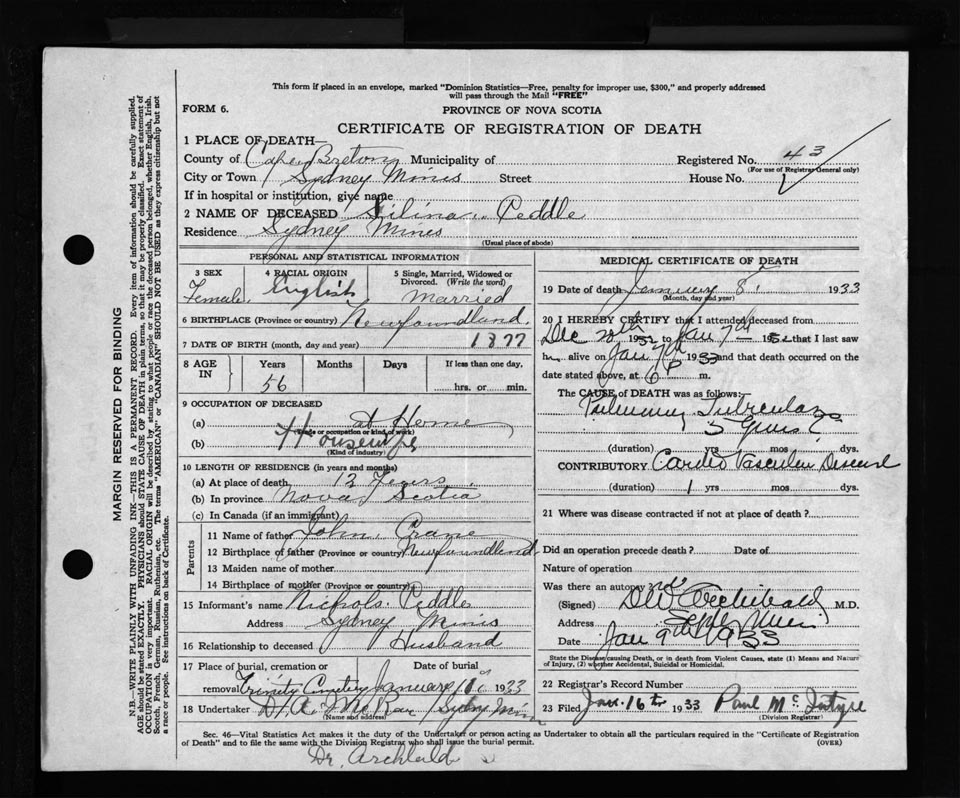 This form if placed in an envelope, marked "Dominion Statistics—Free, penalty for improper use, $300," and properly addressed
will pass through the Mail "FREE"
FORM 6.
PROVINCE OF NOVA SCOTIA
CERTIFICATE OF REGISTRATION OF DEATH
1 PLACE OF DEATH—
County of Cape Breton Municipality of
Registered No. 43
(For use of Registrar General only)
City or Town Sydney Mines Street House No.
If in hospital or institution, give name
2 NAME OF DECEASED Silina Peddle
Residence Sydney Mines
(Usual place of abode)
PERSONAL AND STATISTICAL INFORMATION
3 SEX
Female
4 RACIAL ORIGIN
English
5 Single, Married, Widowed or
Divorced. (Write the word)
Married
6 BIRTHPLACE (Province or country) Newfoundland.
7 DATE OF BIRTH (month, day and year) 1877
8 AGE
IN
Years
56
Months
Days
If less than one day,
hrs. or min.
9 OCCUPATION OF DECEASED
(a) at Home
(Trade or occupation or kind of work)
(b) Housewife
(Kind of industry)
10 LENGTH OF RESIDENCE (in years and months)
(a) At place of death, 12 Years
(b) In province Nova Scotia
(c) In Canada (if an immigrant)
Parents
11 Name of father John Crane
12 Birthplace of father (Province or country) Newfoundland
13 Maiden name of mother
14 Birthplace of mother (Province or country)
15 Informant's name Nichols Peddle
Address Sydney Mines
16 Relationship to deceased Husband
17 Place of burial, cremation or Date of burial
removal Trinity Cemetery January 1933
18 Undertaker D. A. McRae Sydney Mines
(Name and address)
MEDICAL CERTIFICATE OF DEATH
19 Date of death January 8 1933
(Month, day and year)
20 I HEREBY CERTIFY that I attended deceased from
Dec 1932 to Jan 7th that I last saw
h alive on Jan 7th 1933 and that death occurred on
date stated above, at 6 P m.
The CAUSE OF DEATH was as follows:
Pulmonary Tuberculosis
5 years ?
(duration) yrs mos dys.
CONTRIBUTORY Cardio Vascular Disease
(duration) 1 yrs mos dys.
21 Where was disease contracted if not at place of death?
Did an operation precede death? Date of
Nature of operation
Was there an autopsy no
(Signed) D W Archibald M.D.
Address Sydney Mines
Date Jan 9th 1933
State the Disease causing Death, or in death from Violent Causes, state (1) Means and Nature
of Injury, (2) whether Accidental, Suicidal or Homicidal.
22 Registrar's Record Number
23 Filed Jan. 16th 1933 Paul McIntyre
(Division Registrar)
Sec. 46—Vital Statistics Act makes it the duty of the Undertaker or person acting as Undertaker to obtain all the particulars required in the "Certificate of Registration
of Death" and to file the same with the Division Registrar who shall issue the burial permit.
(OVER)
Dr. Archibald
MARGIN RESERVED FOR BINDING
N.B.—WRITE PLAINLY WITH UNFADING INK—THIS IS A PERMANENT RECORD. Every item of information should be carefully supplied.
AGE should be stated EXACTLY. PHYSICIANS should STATE CAUSE OF DEATH in plain terms, so that it may be properly classified. Exact statement of
OCCUPATION is very important. RACIAL ORIGIN will be described by stating to what people or race the deceased person belonged, whether English, Irish,
Scotch, French, German, Russian, Ruthenian, etc. The terms "AMERICAN" or "CANADIAN" SHOULD NOT BE USED as they express citizenship but not
a race or people. See instructions on back of Certificate.